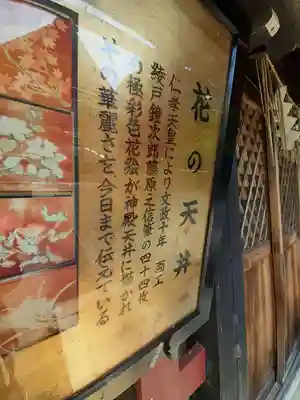 花の天井
仁孝天皇により文政十年 画工
綾戸鐘次郎藤原之信筆の四十四枚
の極彩色花絵が神殿天井に描かれ
その華麗さを今日まで伝えている